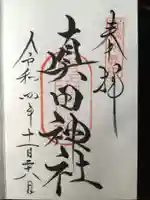 奉拝
真田神社
令和四年十一月六日